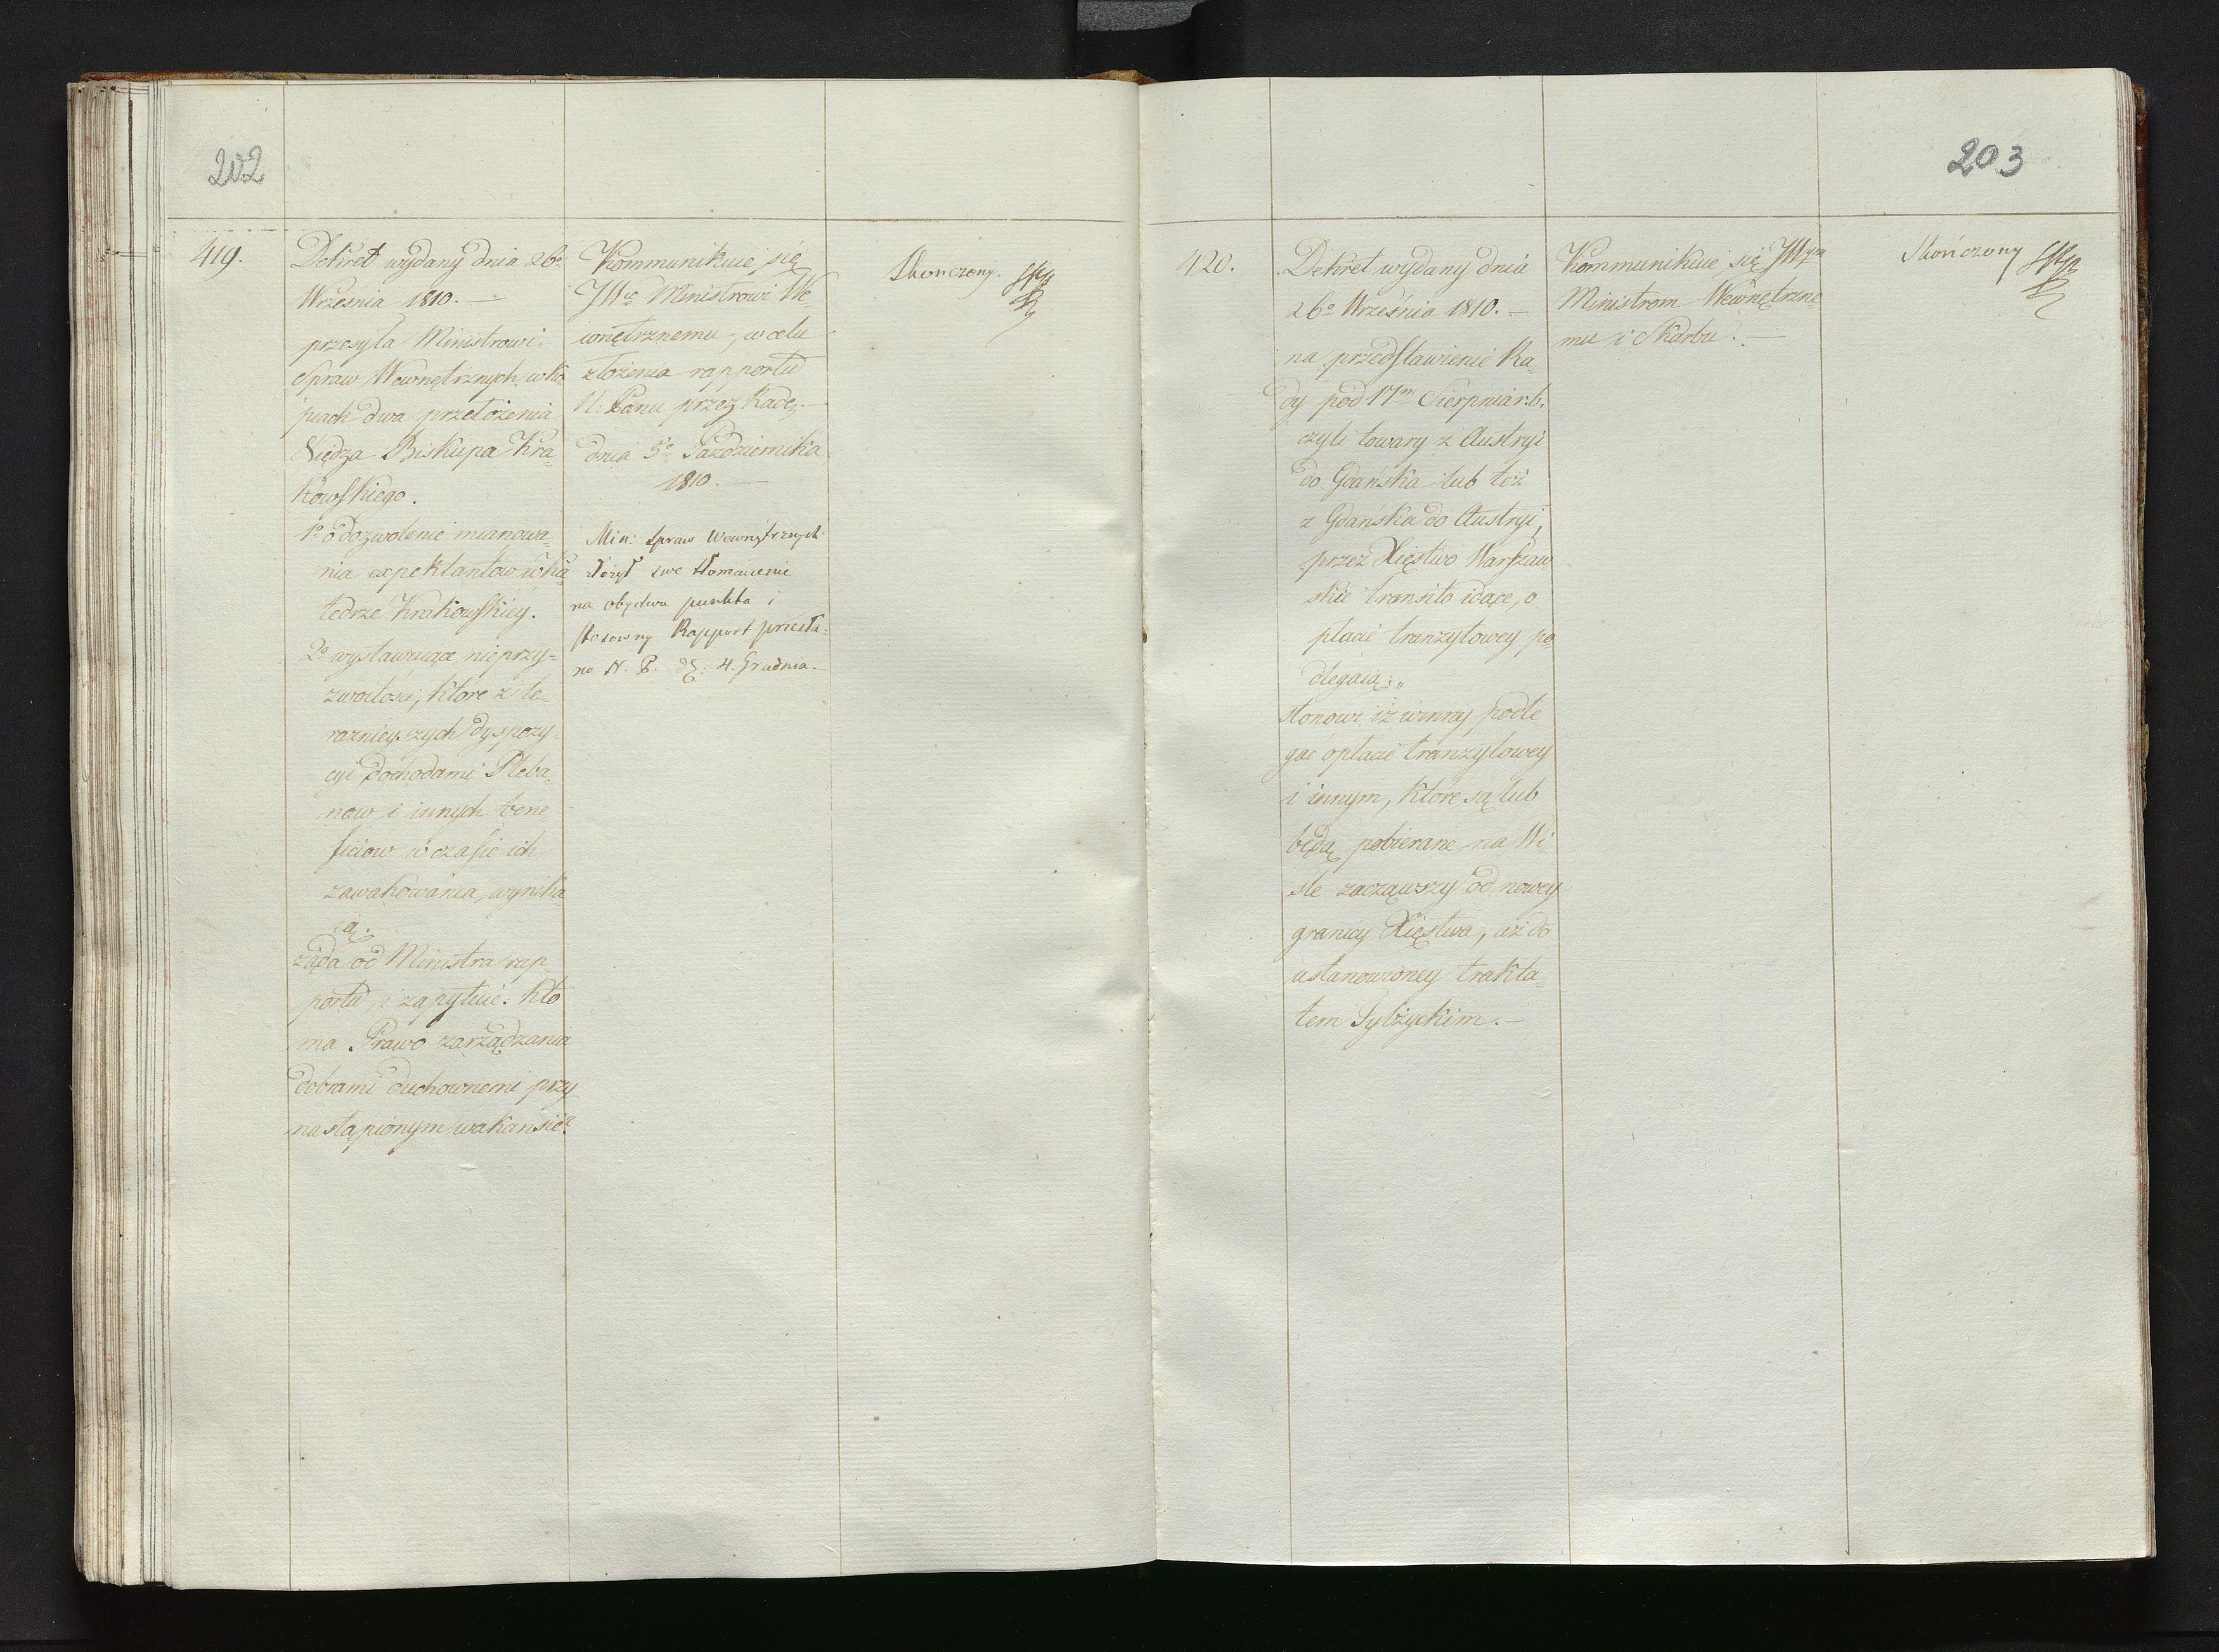 202
419.
Dekret wydany dnia 26º
Września 1810. —
przesyła Ministrowi
Spraw Wewnętrznych w ko
piach dwa przełożenia
Xiędza Biskupa Kra-
kowskiego.
1º o dozwolenie mianowa-
nia expektantow w Ka
tedrze Krakowskiey.
2º wystawuiące nieprzy=
zwoitości, które z te-
raznieyszych dyspozy-
cyi dochodami Pleba-
now i innych bene
ficiow w czasie ich
zawakowania, wynika
ią.
żąda od Ministra rap-
portu i zapytuie: kto
ma Prawo zarządzania
dobrami duchownemi przy
nastąpionym wakansie?
Kommunikuie się
JWu Ministrowi We
wnętrznemu, w celu
złożenia rapportu
N: Panu przez Radę. —
dnia 5º Października
1810. —
Min: Spraw Wewnętrznych
złożył swe tłomaczenie
na obydwa punkta i
stosowny Rapport przesła-
no N. P. 4. Grudnia. —
Skończony.
203
420.
Dekret wydany dnia
26º Września 1810. —
na przedstawienie Ra-
dy pod 17m Sierpnia r. b.
czyli towary z Austryi
do Gdańska lub też
z Gdańska do Austryi,
przez Xięstwo Warszaw
skie transito idące, o
płacie tranzytowey po
dlegaią:„
stanowi iż winny podle
gać opłacie tranzytowey
i innym, które są lub
będą pobierane na Wi-
śle zacząwszy od nowey
granicy Xięstwa, aż do
ustanowioney trakta-
tem Tylżyckim. —
Kommunikuie się JWym
Ministrom Wewnętrzne
mu i Skarbu. —
Skończony